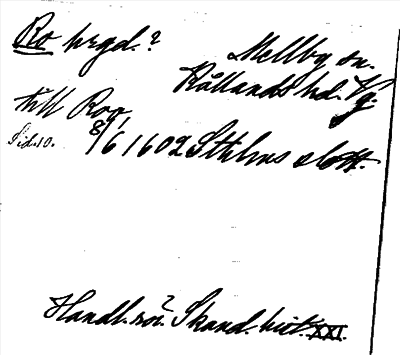 Ro hrgd.?
Mellby sn.
Kållands hd. Vg.
till Roo
Sid. 10.
8/6 1602 Sthlms slott.
Handl. rör? Skand. hist. XXI.